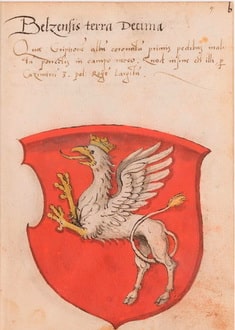 Belzensis terra Decima
Que Griphonē albū coronatū primis pedibus in al
tū porrectis in campo rubeo, Quod est illi p
Casimirū 3. pol. Regē largitū